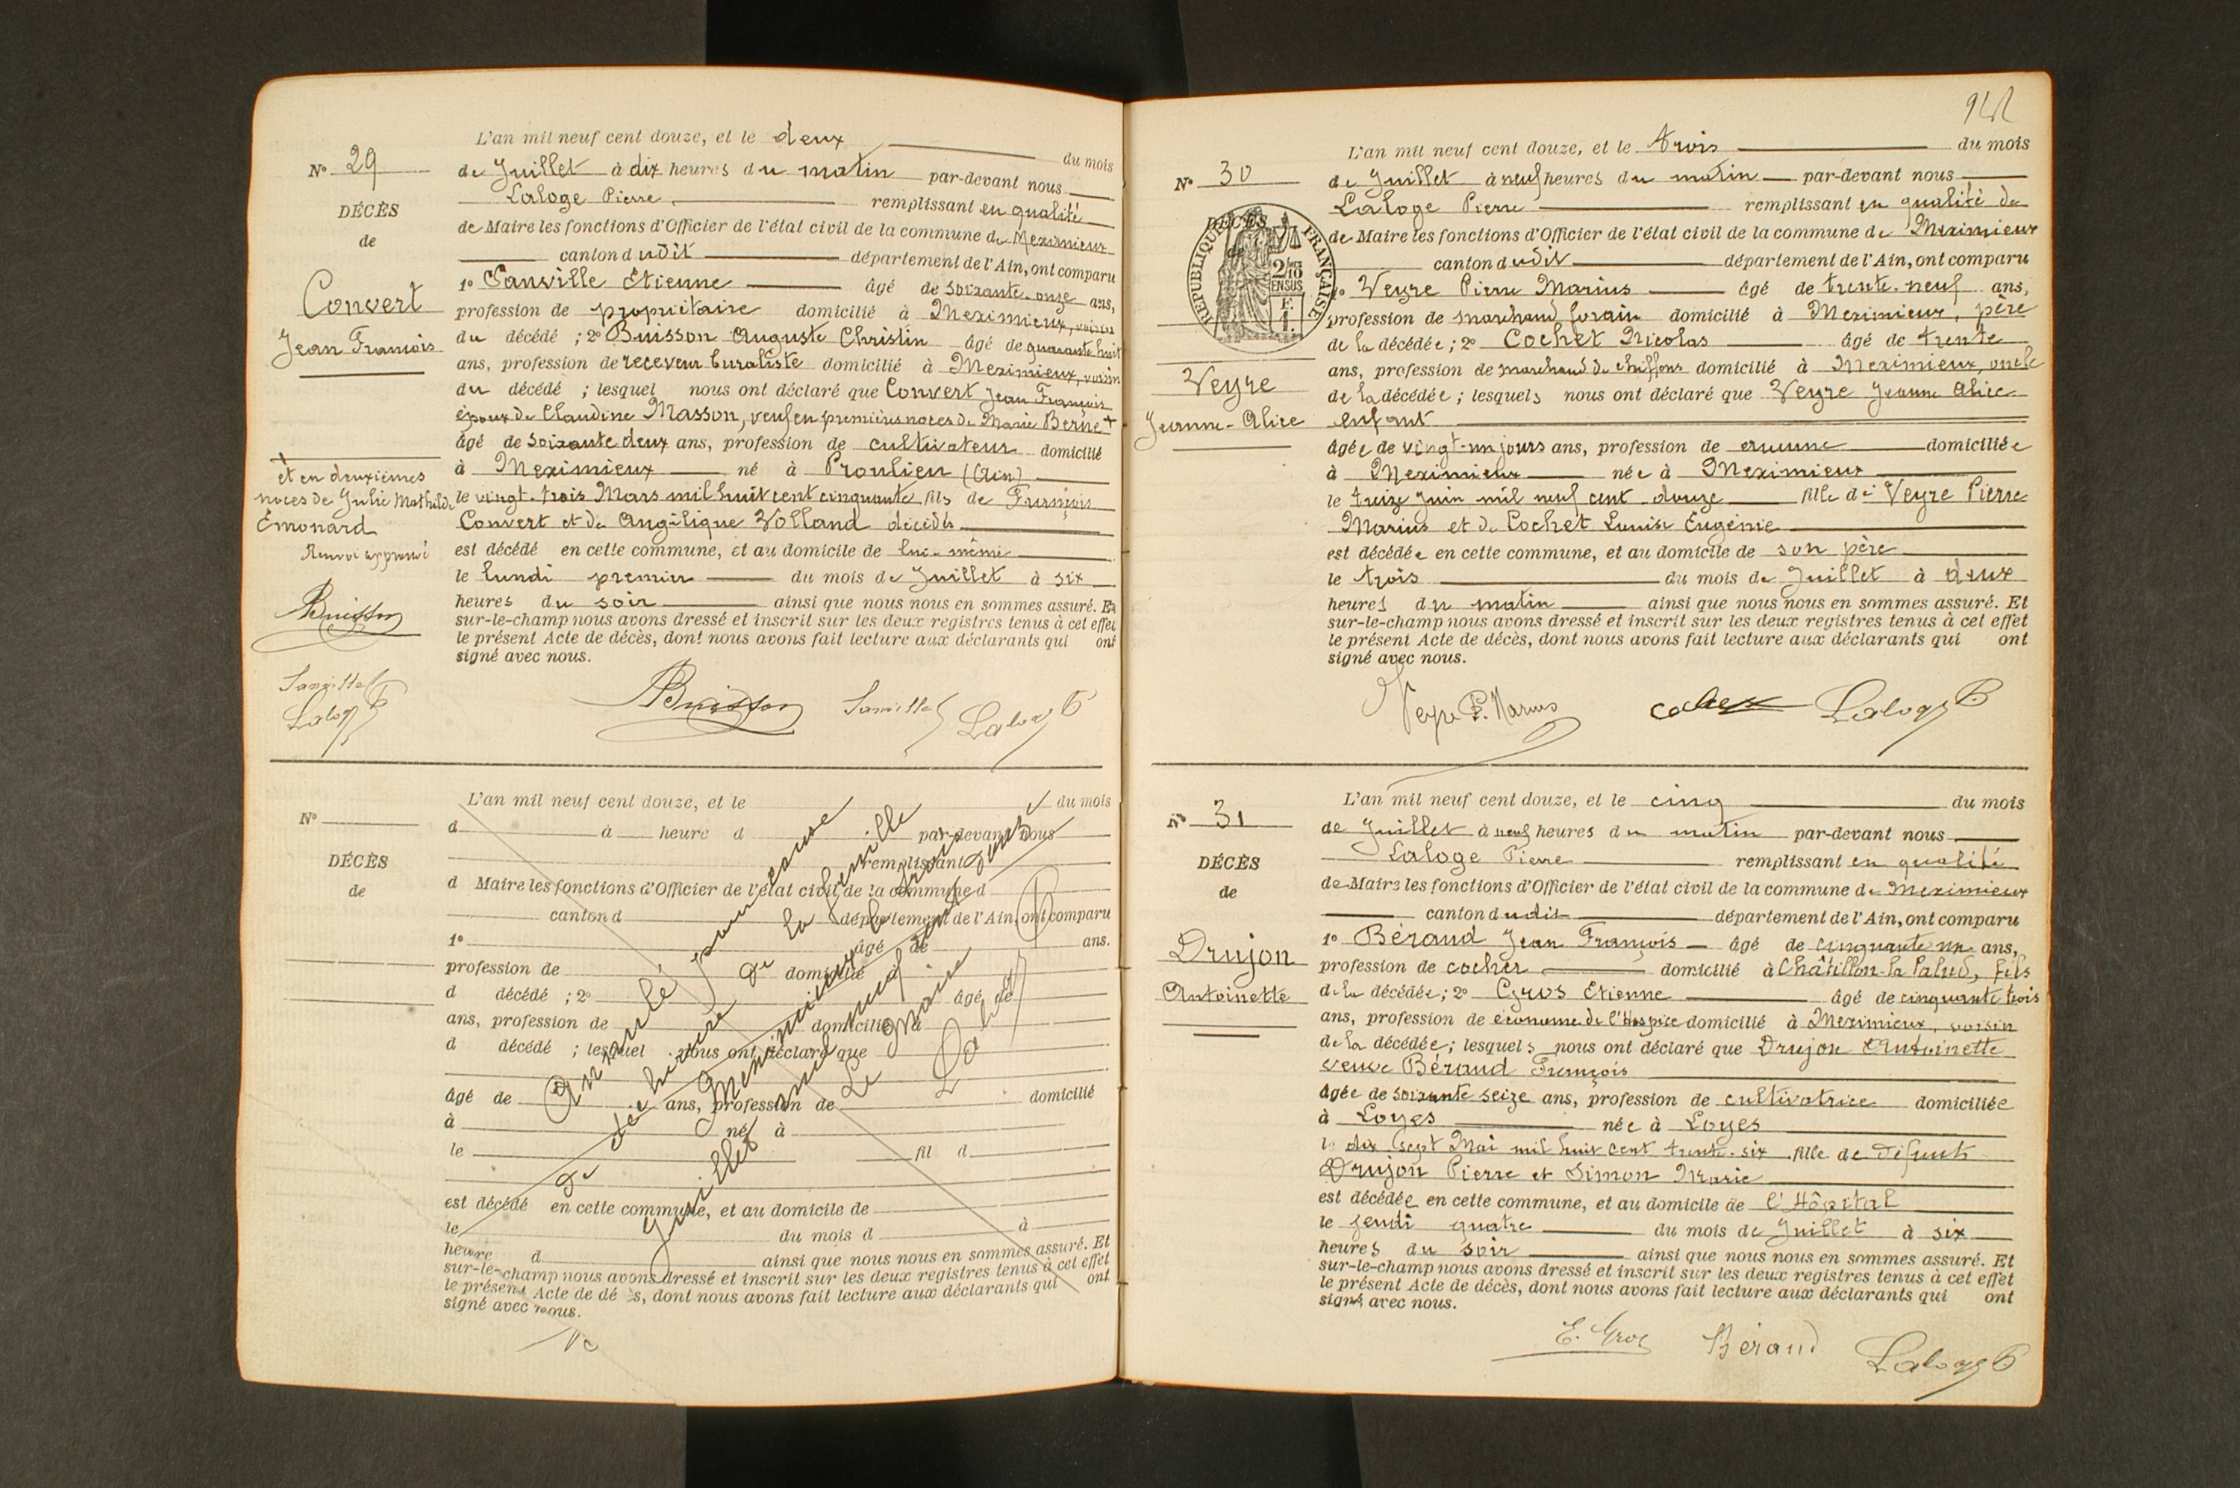 L'an mil neuf cent douze, et le deux du mois
N° 29
de Juillet à dix heures du matin par-devant nous
Laloge Pierre remplissant en qualité
DÉCÈS
de Maire les fonctions d'Officier de l'état civil de la commune de Meximieux
de
canton dudit département de l'Ain, ont comparu
1° Sanville Etienne âgé de soixante-onze ans,
Convert
profession de propriétaire domicilié à Meximieux, voisin
du décédé ; 2° Buisson Auguste Christin âgé de quarante huit
Jean François
ans, profession de receveur buraliste domicilié à Meximieux, voisin
du décédé ; lesquel nous ont déclaré que Convert Jean François
époux de Claudine Masson, veuf en premières noces de Marie Berne +
âgé de soixante deux ans, profession de cultivateur domicilié
à Meximieux né à Proulieu (Ain)
+ et en deuxièmes
noces de Julie Mathilde
Émonard
Renvoi approuvé
le vingt-trois Mars mil huit cent cinquante fils de François
Convert et de Angélique Volland décédés
est décédé en cette commune, et au domicile de lui-même
le lundi premier du mois de Juillet à six
heures du soir ainsi que nous nous en sommes assuré. Et
sur-le-champ nous avons dressé et inscrit sur les deux registres tenus à cet effet
le présent Acte de décès, dont nous avons fait lecture aux déclarants qui ont
signé avec nous.
ABuisson
Sanville
Laloge P
ABuisson Sanville Laloge P
L'an mil neuf cent douze, et le du mois
N°
d à heure d par-devant nous
remplissant
DÉCÈS
d Maire les fonctions d'Officier de l'état civil de la commune d
de
canton d département de l'Ain, ont comparu
1° âgé de ans.
profession de domicilié à
d décédé ; 2° âgé de
ans, profession de domicilié à
d décédé ; lesquel nous ont déclaré que
âgé de ans, profession de domicilié
à né à
le fil d
est décédé en cette commune, et au domicile de
le du mois d à
heure d ainsi que nous nous en sommes assuré. Et
sur-le-champ nous avons dressé et inscrit sur les deux registres tenus à cet effet
le présent Acte de décès, dont nous avons fait lecture aux déclarants qui ont
signé avec nous.
Annulé pour cause
de déchirure de la feuille
Meximieux le trois
Juillet mil neuf cent douze
Le Maire
Laloge P
L'an mil neuf cent douze, et le trois du mois
N° 30
de Juillet à neuf heures du matin par-devant nous
Laloge Pierre remplissant en qualité de
DÉCÈS
RÉPUBLIQUE FRANÇAISE
2/10 EN SUS
F. 1.
de Maire les fonctions d'Officier de l'état civil de la commune de Meximieux
canton dudit département de l'Ain, ont comparu
1° Veyre Pierre Marius âgé de trente-neuf ans,
profession de marchand forain domicilié à Meximieux, père
de la décédée ; 2° Cochet Nicolas âgé de trente
Veyre
ans, profession de marchand de chiffons domicilié à Meximieux, oncle
de la décédée ; lesquels nous ont déclaré que Veyre Jeanne Alice
Jeanne-Alice
enfant
âgée de vingt-un jours ans, profession de aucune domiciliée
à Meximieux née à Meximieux
le treize Juin mil neuf cent douze fille de Veyre Pierre
Marius et de Cochet Louise Eugénie
est décédée en cette commune, et au domicile de son père
le trois du mois de Juillet à deux
heures du matin ainsi que nous nous en sommes assuré. Et
sur-le-champ nous avons dressé et inscrit sur les deux registres tenus à cet effet
le présent Acte de décès, dont nous avons fait lecture aux déclarants qui ont
signé avec nous.
Veyre P. Marius Cochet Laloge P
L'an mil neuf cent douze, et le cinq du mois
N° 31
de Juillet à neuf heures du matin par-devant nous
Laloge Pierre remplissant en qualité
DÉCÈS
de Maire les fonctions d'Officier de l'état civil de la commune de Meximieux
de
canton dudit département de l'Ain, ont comparu
1° Béraud Jean François âgé de cinquante un ans,
Drujon
profession de cocher domicilié à Châtillon-la-Palud, fils
Antoinette
de la décédée ; 2° Gros Etienne âgé de cinquante trois
ans, profession de économe de l'Hospice domicilié à Meximieux, voisin
de la décédée ; lesquels nous ont déclaré que Drujon Antoinette
veuve Béraud François
âgée de soixante seize ans, profession de cultivatrice domiciliée
à Loyes née à Loyes
le dix sept Mai mil huit cent trente-six fille de défunts
Drujon Pierre et Simon Marie
est décédée en cette commune, et au domicile de l'Hôpital
le jeudi quatre du mois de Juillet à six
heures du soir ainsi que nous nous en sommes assuré. Et
sur-le-champ nous avons dressé et inscrit sur les deux registres tenus à cet effet
le présent Acte de décès, dont nous avons fait lecture aux déclarants qui ont
signé avec nous.
E. Gros Béraud Laloge P